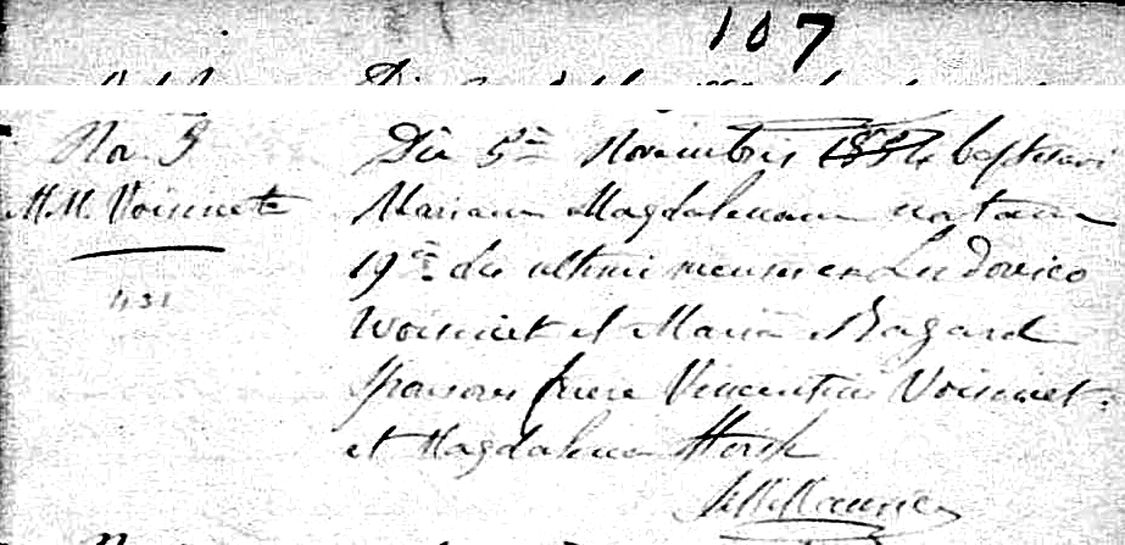 107
Nov. 5
M.M. Voisinet
Die 5ª Novembris 1884 baptisavi
Mariam Magdalenam natam
19ª die ultimi mensis ex Ludovico
Woisinet et Maria Bagard
Sponsores fuere Vincentius Voisinet
et Magdalena